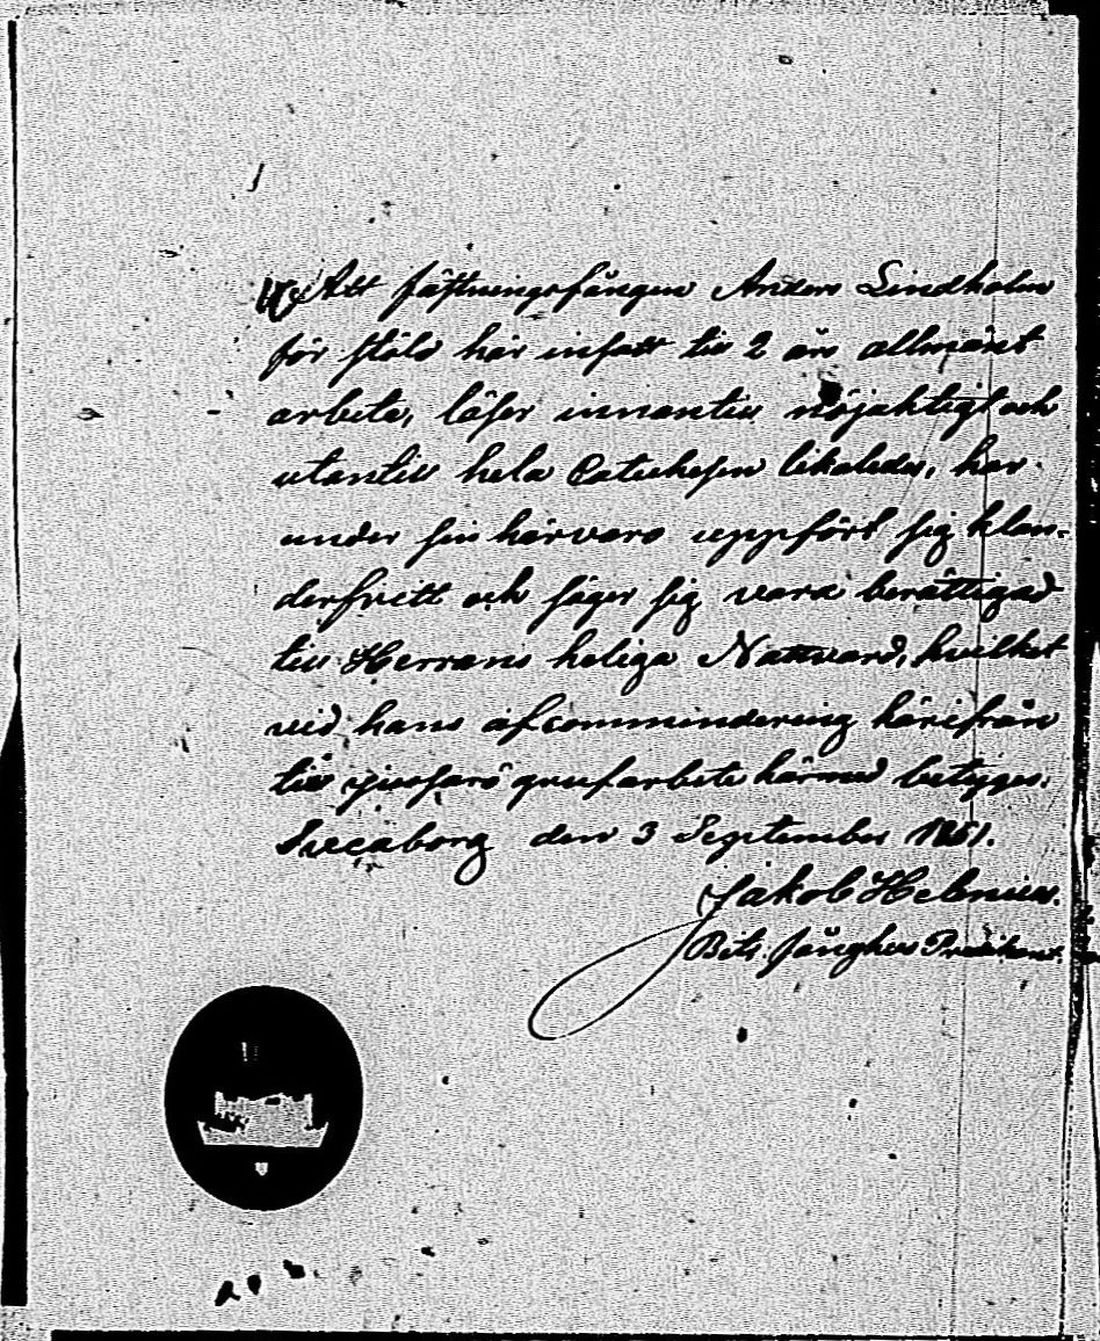 Att fästningsfången Anders Lindholm
för stöld här insatt till 2 års allmänt
arbete, läser innantill nöjaktigt och
utantill hela Catechesen likaledes, har
under sin härvaro uppfört sig klan-
derfritt och säger sig vara berättigad
till Herrans heliga Nattvard, hvilket
vid hans afcommendering härifrån
till Jussarö grufarbete härmed betygas.
Sveaborg den 3 September 1851.
Jakob Helenius.
Bitr. Fånghus Predikant.